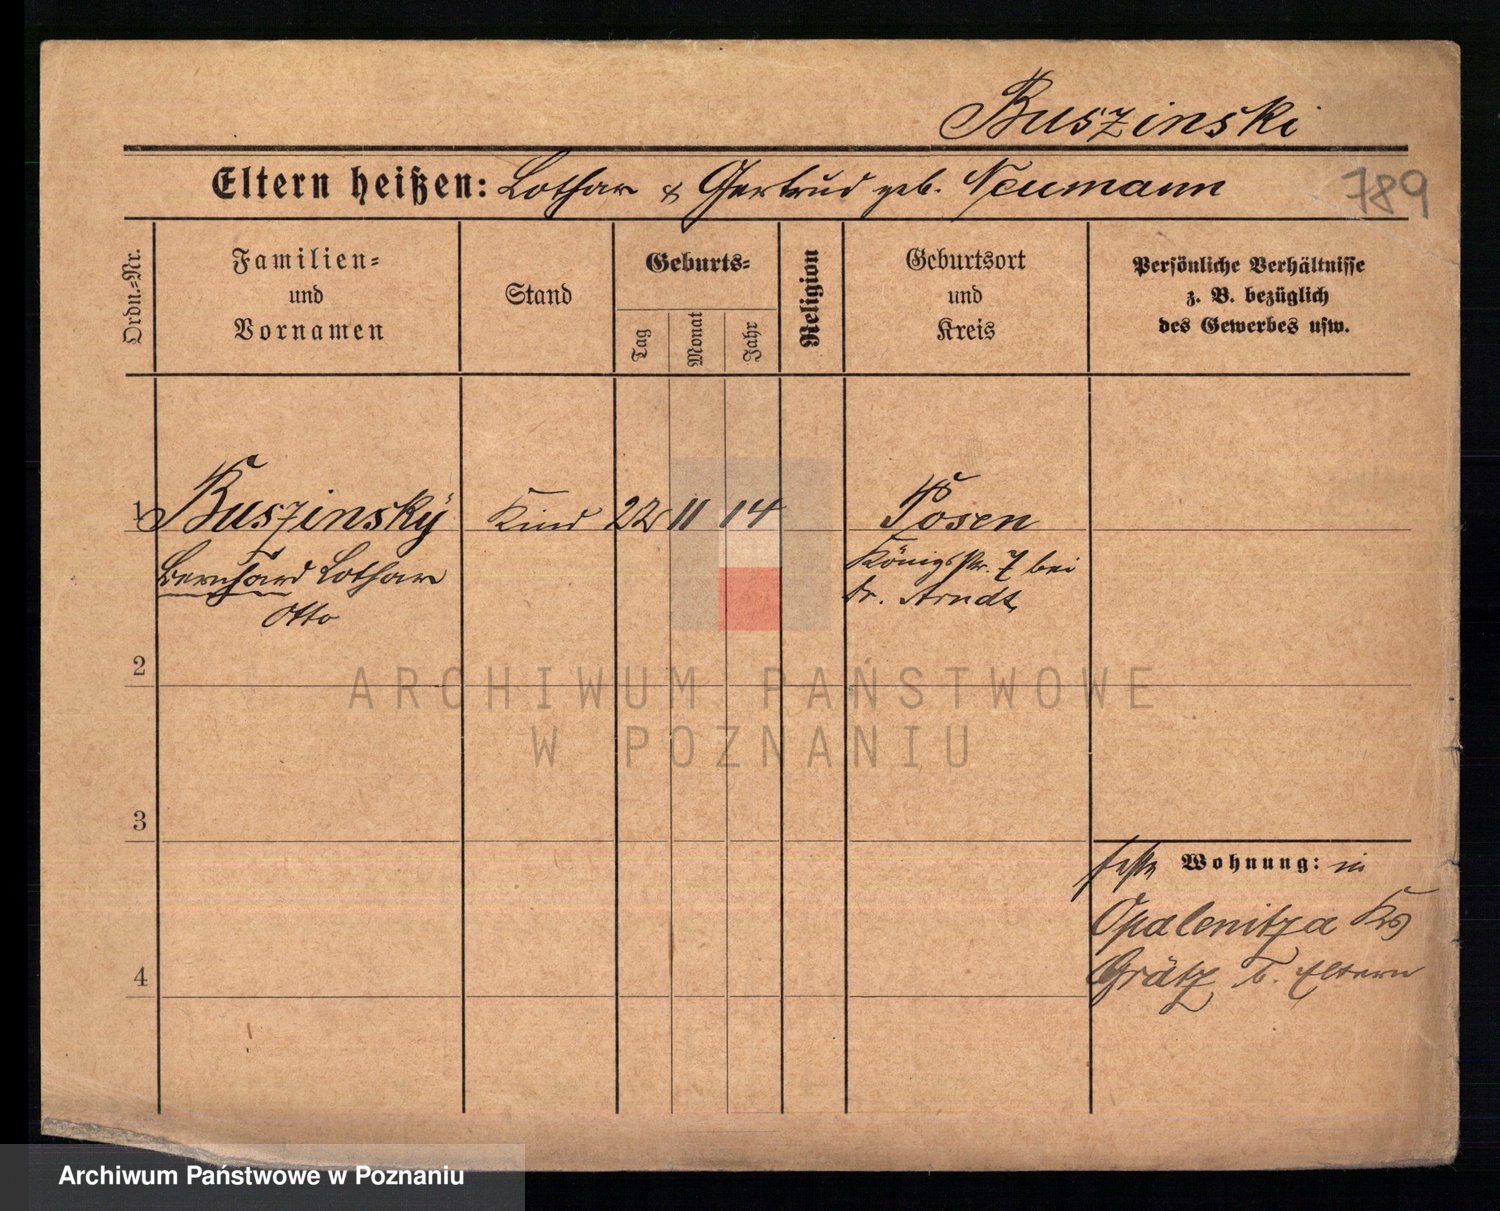 Buszinski
Eltern heißen: Lothar & Gertrud geb. Neumann
789
Ordn.-Nr.
Familien-
und
Vornamen
Stand
Geburts-
Tag
Monat
Jahr
Religion
Geburtsort
und
Kreis
Persönliche Verhältnisse
z. B. bezüglich
des Gewerbes usw.
1 Buszinsky Kind 22 11 14 Posen
Bernhard Lothar Königsstr. 7 bei
Otto
Arndt
2
ARCHIWUM PAŃSTWOWE
W POZNANIU
3
feste Wohnung: in
Opalenitza Krs
4
Grätz b. Eltern
Archiwum Państwowe w Poznaniu